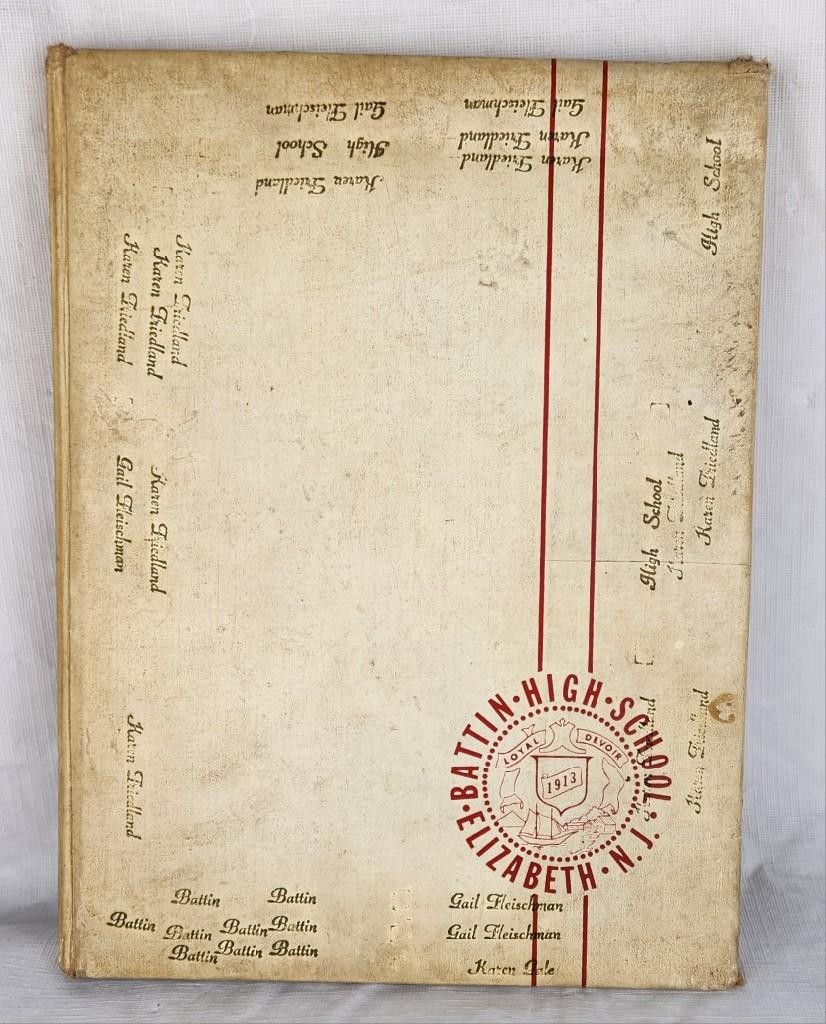 Gail Fleischman
Gail Fleischman
High School
Karen Friedland
Karen Friedland
Karen Friedland
High School
Karen Friedland
Karen Friedland
Karen Friedland
Gail Fleischman
Karen Friedland
High School
Karen Friedland
Karen Friedland
Karen Friedland
Karen Friedland
BATTIN · HIGH · SCHOOL
LOYAL DEVOIR
1913
ELIZABETH · N.J.
Battin Battin
Battin Battin Battin Battin
Battin Battin Battin
Gail Fleischman
Gail Fleischman
Karen Gale